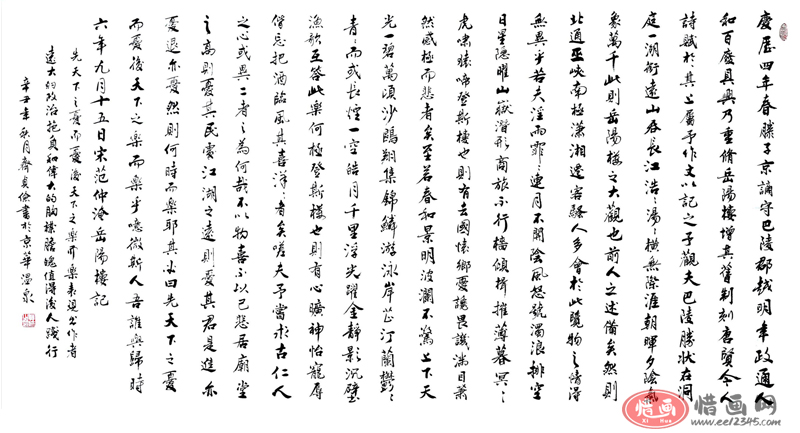 慶曆四年春滕子京謫守巴陵郡越明年政通人
和百廢具興乃重脩岳陽樓增其舊制刻唐賢今人
詩賦於其上屬予作文以記之予觀夫巴陵勝狀在洞
庭一湖銜遠山吞長江浩〻湯〻橫無際涯朝暉夕陰氣
象萬千此則岳陽樓之大觀也前人之述備矣然則
北通巫峽南極瀟湘遷客騷人多會於此覽物之情得
無異乎若夫淫雨霏〻連月不開陰風怒號濁浪排空
日星隱曜山嶽潛形商旅不行檣傾楫摧薄暮冥〻
虎嘯猿啼登斯樓也則有去國懷鄉憂讒畏譏滿目蕭
然感極而悲者矣至若春和景明波瀾不驚上下天
光一碧萬頃沙鷗翔集錦鱗游泳岸芷汀蘭鬱〻
青〻而或長煙一空皓月千里浮光躍金靜影沉璧
漁歌互答此樂何極登斯樓也則有心曠神怡寵辱
偕忘把酒臨風其喜洋〻者矣嗟夫予嘗求古仁人
之心或異二者之為何哉不以物喜不以己悲居廟堂
之高則憂其民處江湖之遠則憂其君是進亦
憂退亦憂然則何時而樂耶其必曰先天下之憂
而憂後天下之樂而樂乎噫微斯人吾誰與歸時
六年九月十五日宋范仲淹岳陽樓記
先天下之憂而憂後天下之樂而樂表現出作者
遠大的政治抱負和偉大的胸襟膽魄值得後人踐行
辛丑年秋月齊良儉書於京華溫泉
惜画
Xi Hua
惜画网
www.ee12345.com